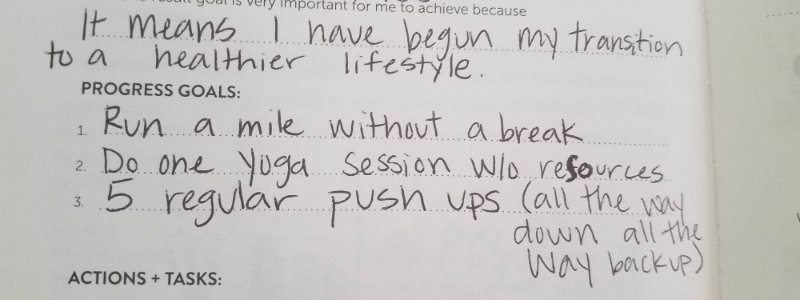 result goal is very important for me to achieve because
It means I have begun my transition
to a healthier lifestyle.
PROGRESS GOALS:
1. Run a mile without a break
2. Do one yoga session w/o resources
3. 5 regular push ups (all the way
down all the
way back up)
ACTIONS + TASKS: